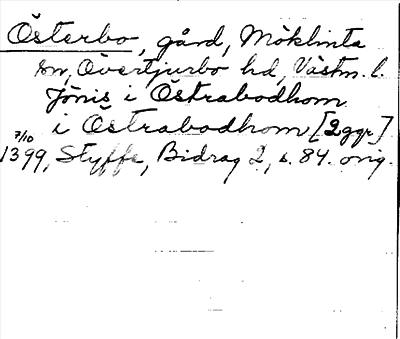 Österbo, gård, Möklinta
sn, Övertjurbo hd, Västm. l.
Jönis i Östrabodhom
i Östrabodhom [2 ggr]
7/10
1399, Styffe, Bidrag 2, s. 84. orig.